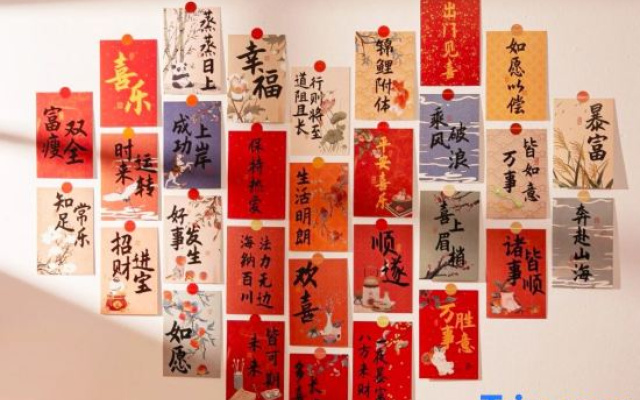 富瘦双全
知足常乐
喜乐
时来运转
招财进宝
蒸蒸日上
成功上岸
好事发生
如愿
幸福
保持热爱
海纳百川
法力无边
未来皆可期
道阻且长
行则将至
生活明朗
欢喜
锦鲤附体
平安喜乐
顺遂
一夜暴富
八方来财
出门见喜
乘风破浪
喜上眉梢
万事胜意
如愿以偿
万事皆如意
诸事皆顺
暴富
奔赴山海